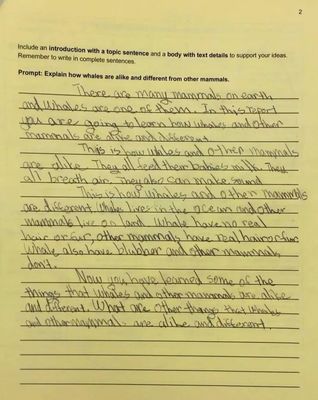 2
Include an introduction with a topic sentence and a body with text details to support your ideas.
Remember to write in complete sentences.
Prompt: Explain how whales are alike and different from other mammals.
There are many mammals on earth
and whales are one of them. In this report
you are going to learn how whales and other
mammals are alike and different.
This is how whales and other mammals
are alike. They all feed them babies milk. They
all breath air. They also can make sound
This is how whales and other mammals
are different. Whale lives in the ocean and other
mammals live on land. Whale have no real
hair or fur, other mammals have real hair or fur
Whale also have blubber and other mammals
don't.
Now you have learned some of the
things that whales and other mammals are alike
and different. What are other things that whales
and other mammal are alike and different.